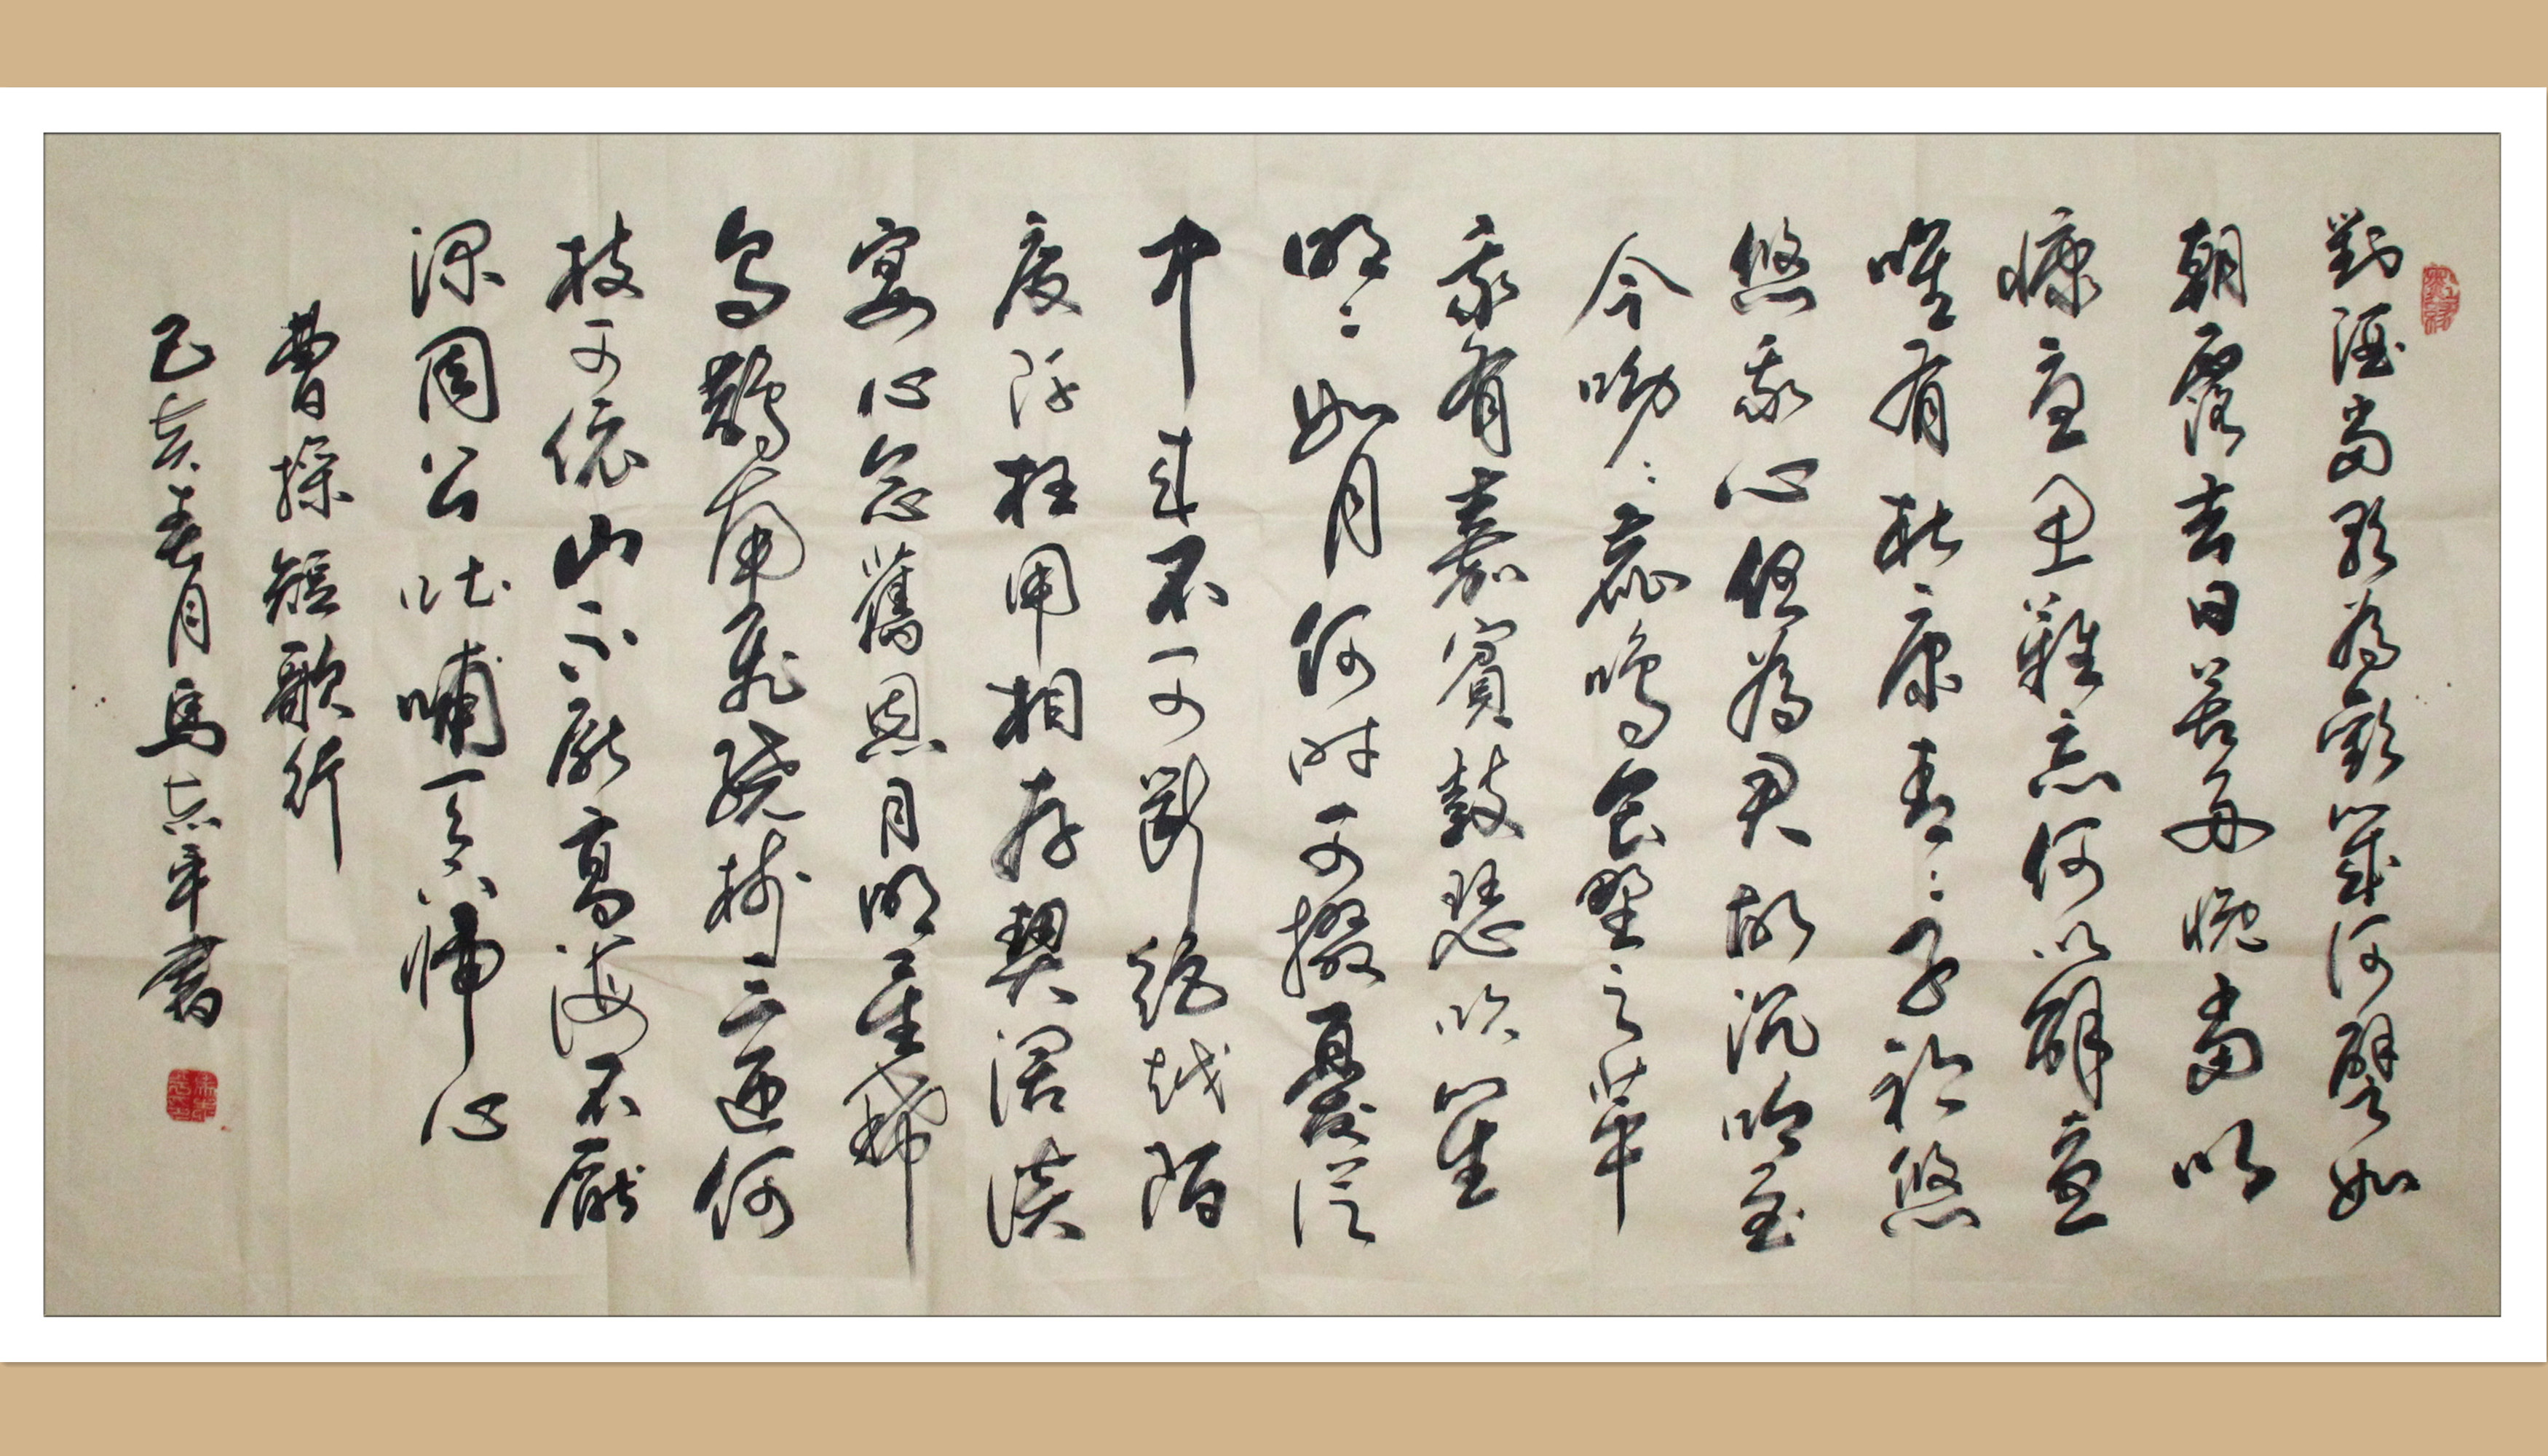 對酒當歌為歡幾何譬如
朝露去日苦多慨當以
慷憂思難忘何以解憂
唯有杜康青〻子衿悠
悠我心但為君故沉吟至
今呦〻鹿鳴食野之苹
我有嘉賓鼓瑟吹笙
明〻如月何時可掇憂從
中來不可斷絕越陌
度阡枉用相存契闊談
宴心念舊恩月明星稀
烏鵲南飛繞樹三匝何
枝可依山不厭高海不厭
深周公吐哺天下歸心
曹操短歌行
己亥春月馬志平書